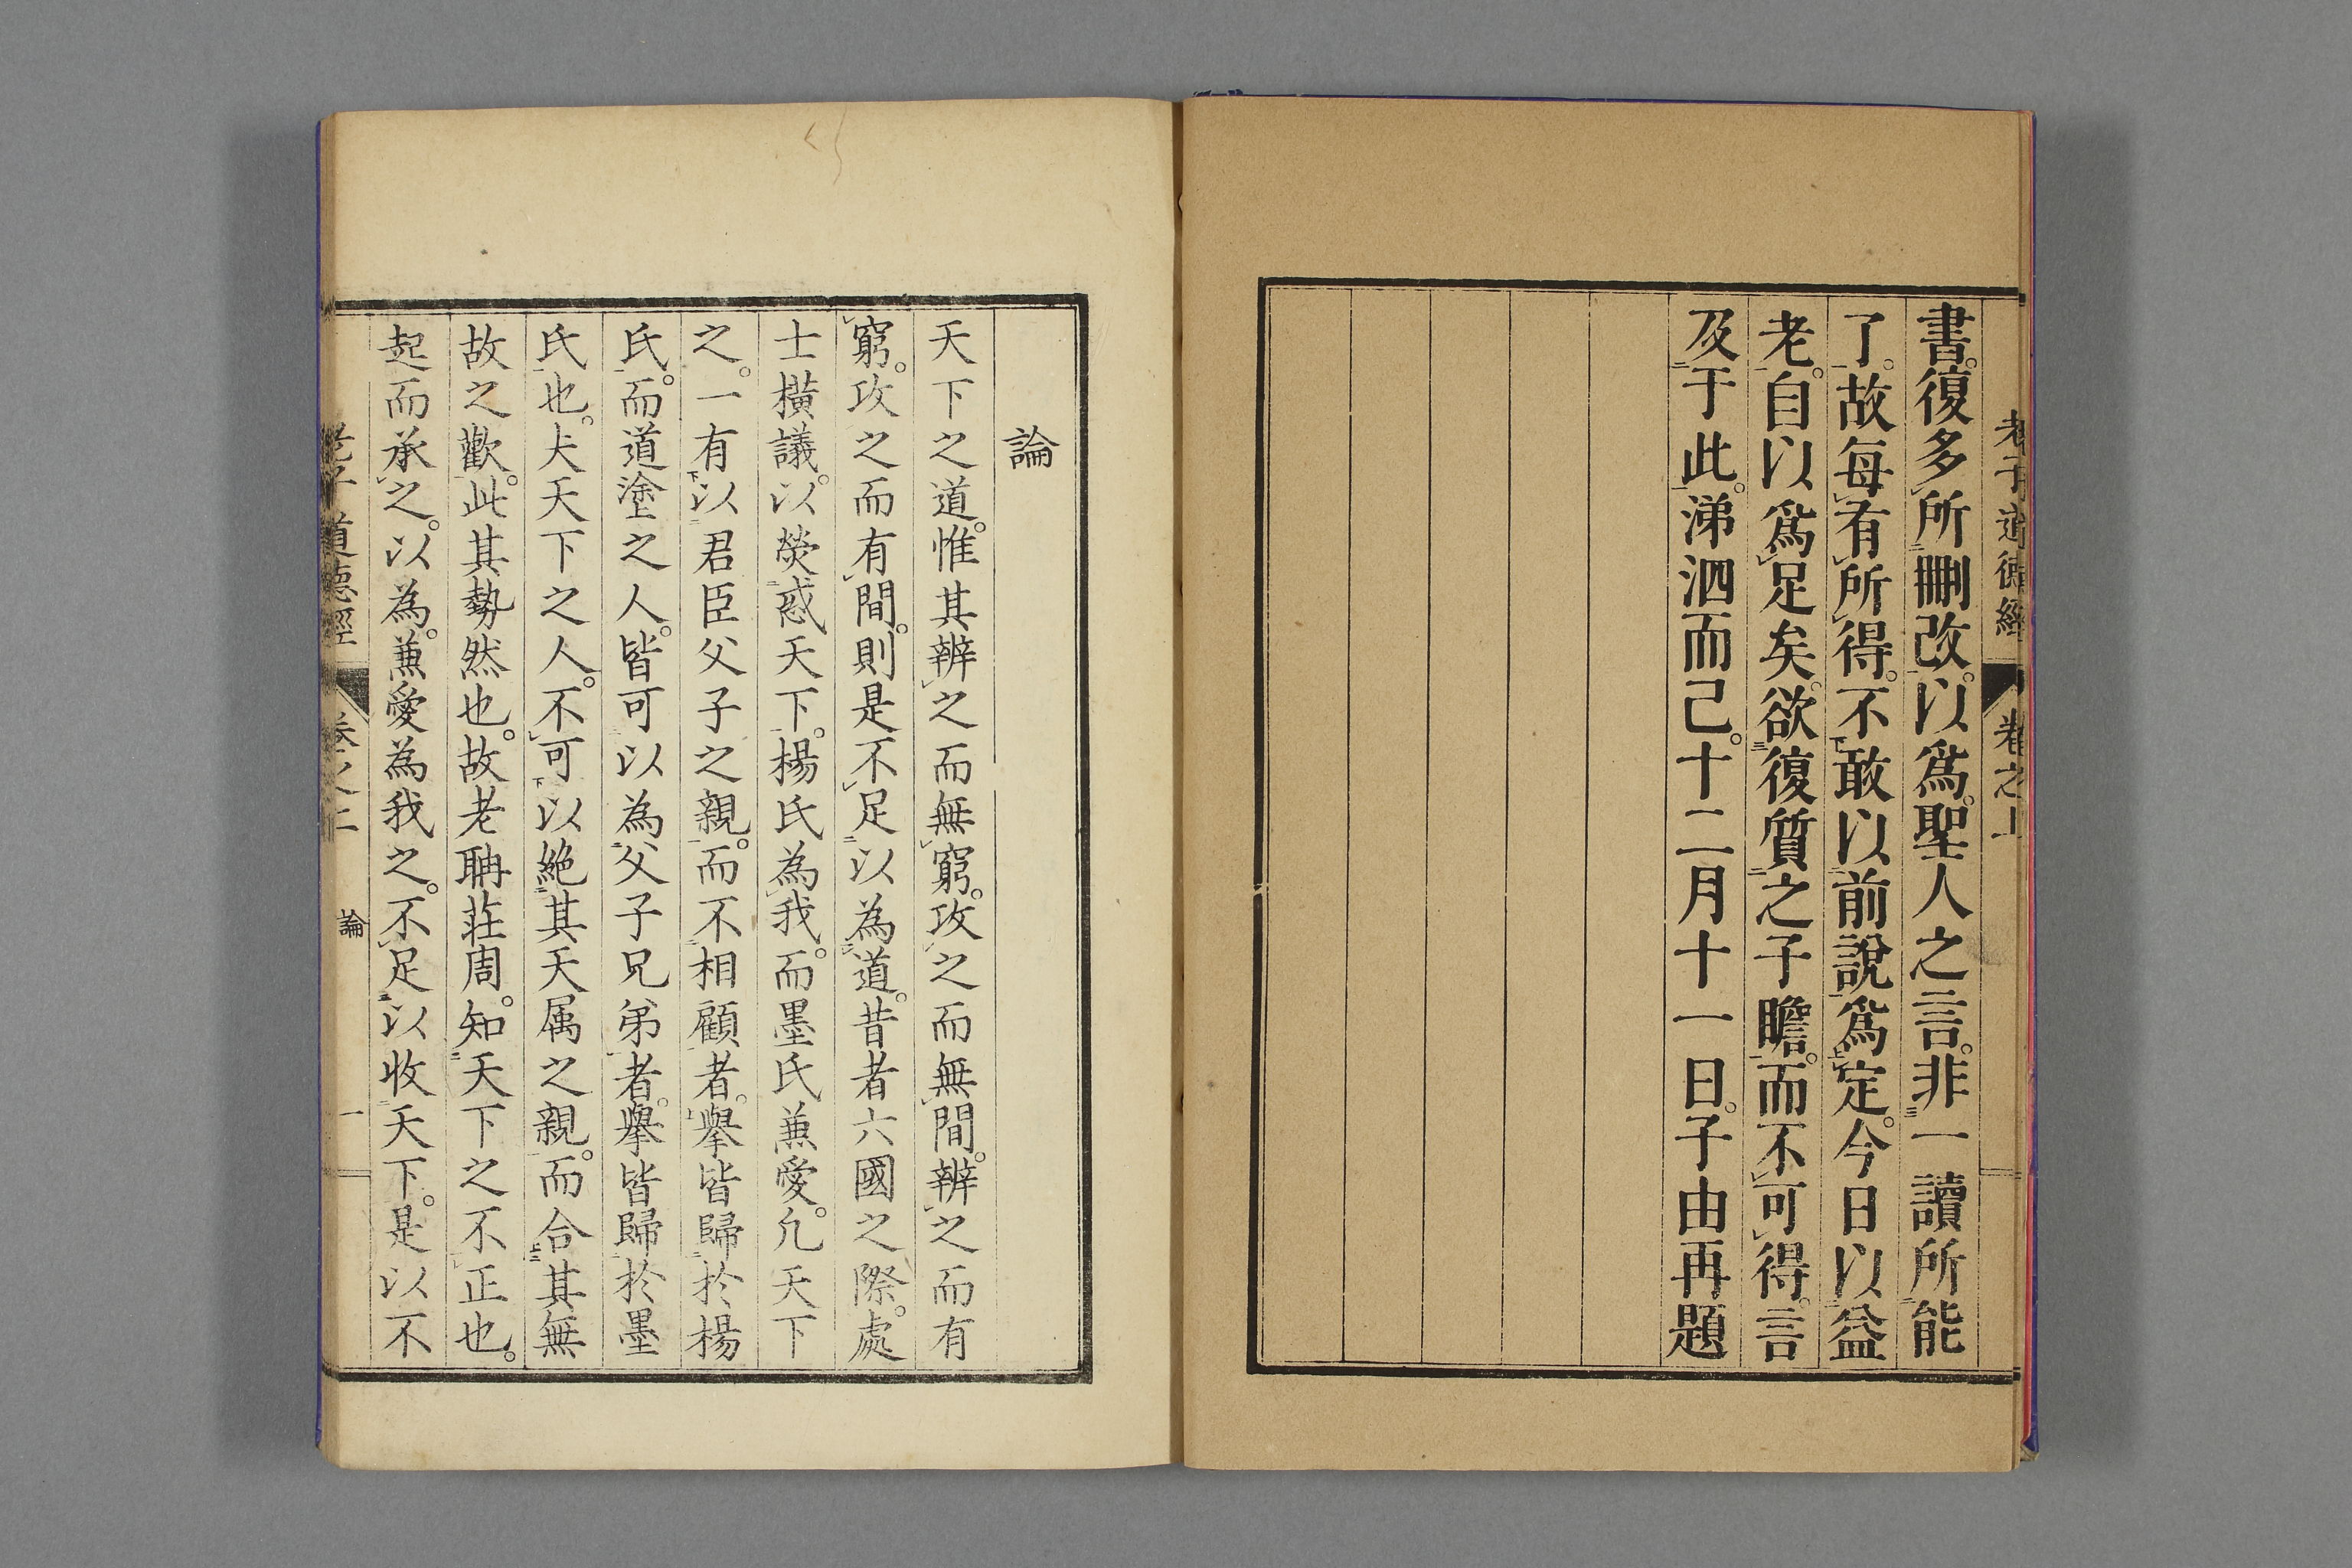 老子道德經　卷之上
書。復多所刪改。以爲聖人之言。非一讀所能
了。故每有所得。不敢以前說爲定。今日以益
老。自以爲足矣。欲復質之子瞻。而不可得。言
及于此。涕泗而已。十二月十一日。子由再題
論
天下之道。惟其辨之而無窮。攻之而無間。辨之而有
窮。攻之而有間。則是不足以為道。昔者六國之際。處
士橫議。以熒惑天下。楊氏為我。而墨氏兼愛。凢天下
之。一有以君臣父子之親。而不相顧者。舉皆歸於楊
氏。而道塗之人。皆可以為父子兄弟者。舉皆歸於墨
氏也。夫天下之人。不可以絶其天属之親。而合其無
故之歡。此其勢然也。故老聃荘周。知天下之不正也。
起而承之。以為。兼愛為我之。不足以收天下。是以不
老子道德經　卷之二　論　一